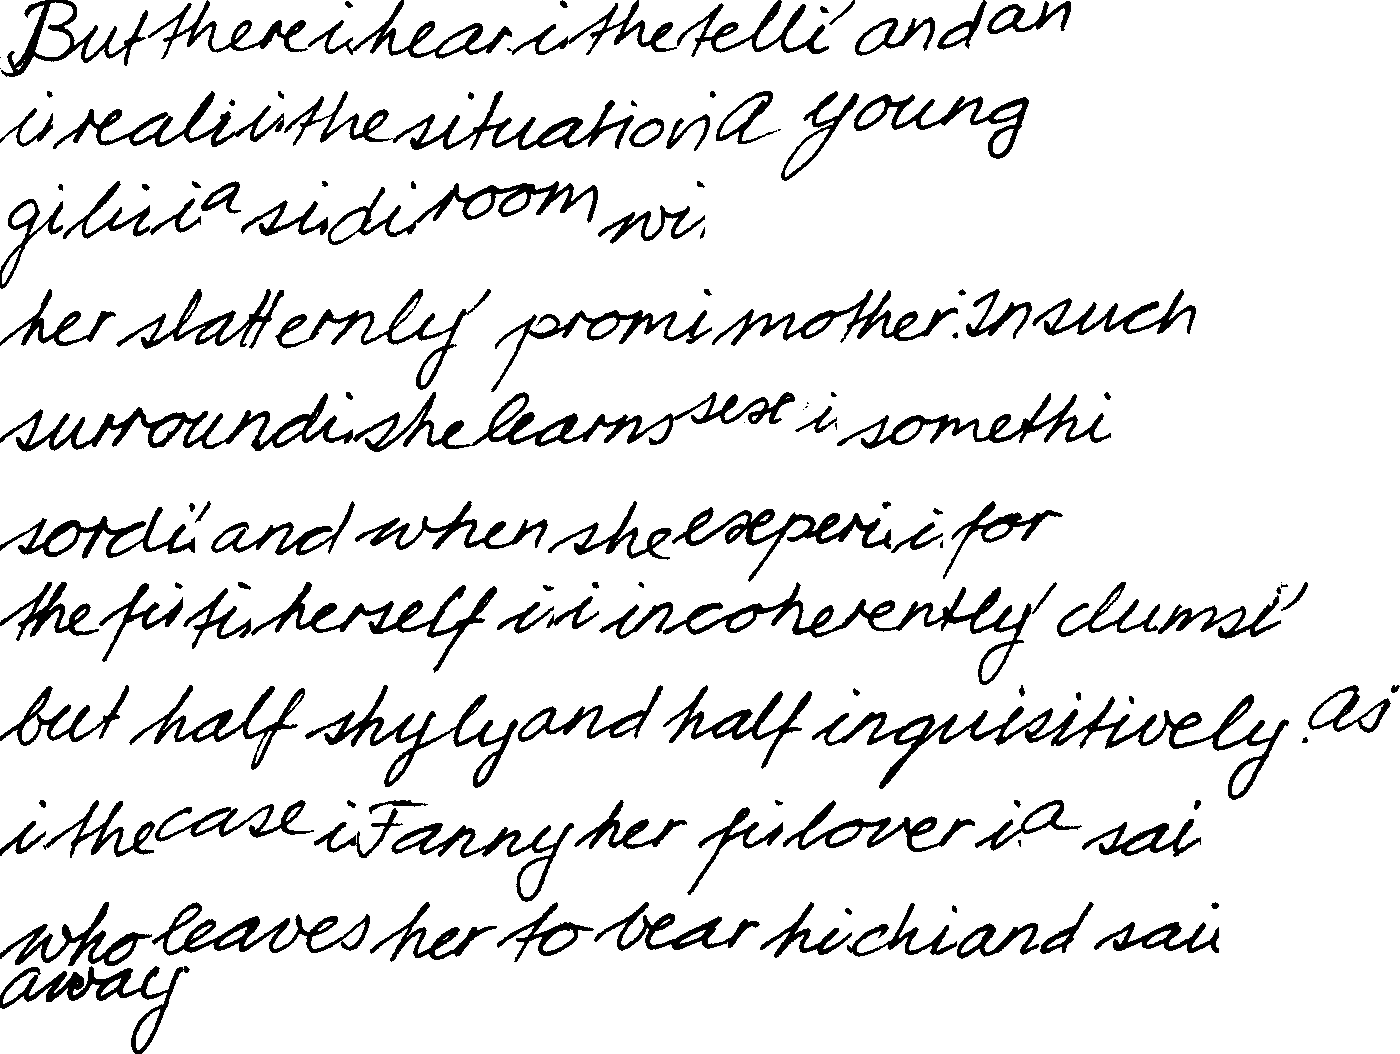 But there i hear i the telli' and an
is reali is the situation i A young
gi li i i a si di room wi
her slatternly' promi mother. In such
surroundi she learns sex i somethi
sordi' and when she experi i for
the fis ti herself i i incoherently' clumsi'
but half shyly and half inquisitively. As
i the case i Fanny her fis lover i a sai
who leaves her to bear hi chi and sai
away